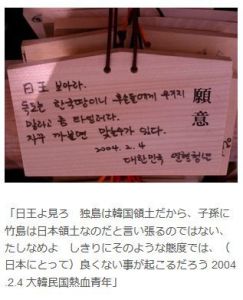 願意
日王 보아라.
독도는 한국땅이니 후손들에게 우기지
말라고 좀 타일러라.
자꾸 까불면 맞는수가 있다.
2004. 2. 4
대한민국 열혈청년
「日王よ見ろ　独島は韓国領土だから、子孫に
竹島は日本領土なのだと言い張るのではない、
たしなめよ　しきりにそのような態度では、（
日本にとって）良くない事が起こるだろう 2004
.2.4 大韓民国熱血青年」